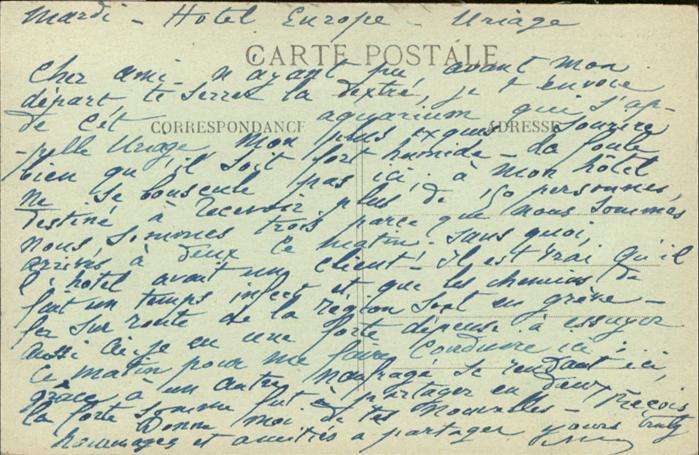 Mardi - Hotel Europe - Uriage
CARTE POSTALE
CORRESPONDANCE
ADRESSE
Cher ami - n'ayant pu, avant mon
départ, te serrer la dextre, je t'envoie
de cet aquarium qui s'ap-
-pelle Uriage mon plus exquis sourire
bien qu'il soit fort humide - La foule
ne se bouscule pas ici ; à mon hôtel
destiné à recevoir plus de 150 personnes,
nous sommes trois parce que nous sommes
arrivés à deux ce matin. Sans quoi,
l'hôtel avant un client ! Il est vrai qu'il
fait un temps infect et que les chemins de
fer sur route de la région sont en grève -
aussi ai-je eu une forte dépense à essuyer
ce matin pour me faire conduire ici ;
grâce à un autre naufragé se rendant ici,
la forte somme fut à partager en deux. Reçois
Donne moi de tes nouvelles -
hommages et amitiés à partager yours truly